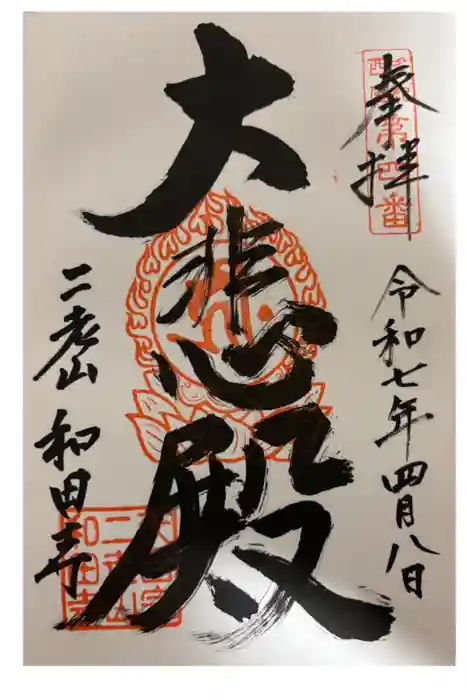 奉拝
第四番
令和七年四月八日
大悲殿
二老山 和田寺